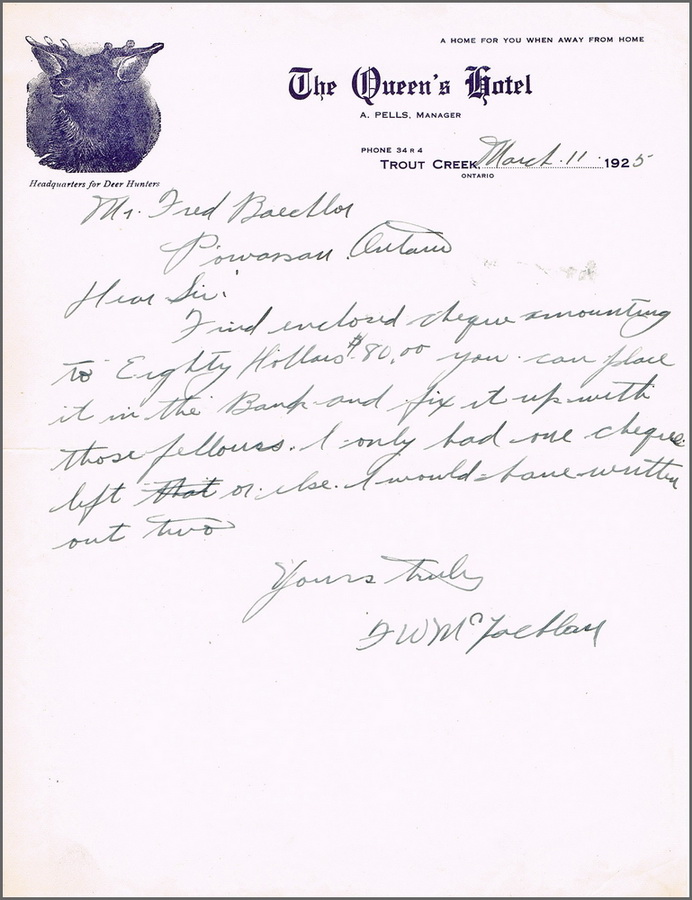 A HOME FOR YOU WHEN AWAY FROM HOME
The Queen's Hotel
A. PELLS, MANAGER
PHONE 34 R 4
TROUT CREEK, March 11 1925
ONTARIO
Headquarters for Deer Hunters
Mr. Fred Baechlor
Powassan Ontario
Dear Sir:
Find enclosed cheque amounting
to Eighty Dollars $80.00 you can place
it in the Bank and fix it up with
those fellows. I only had one cheque
left that or else I would have written
out two
Yours truly
W Mc